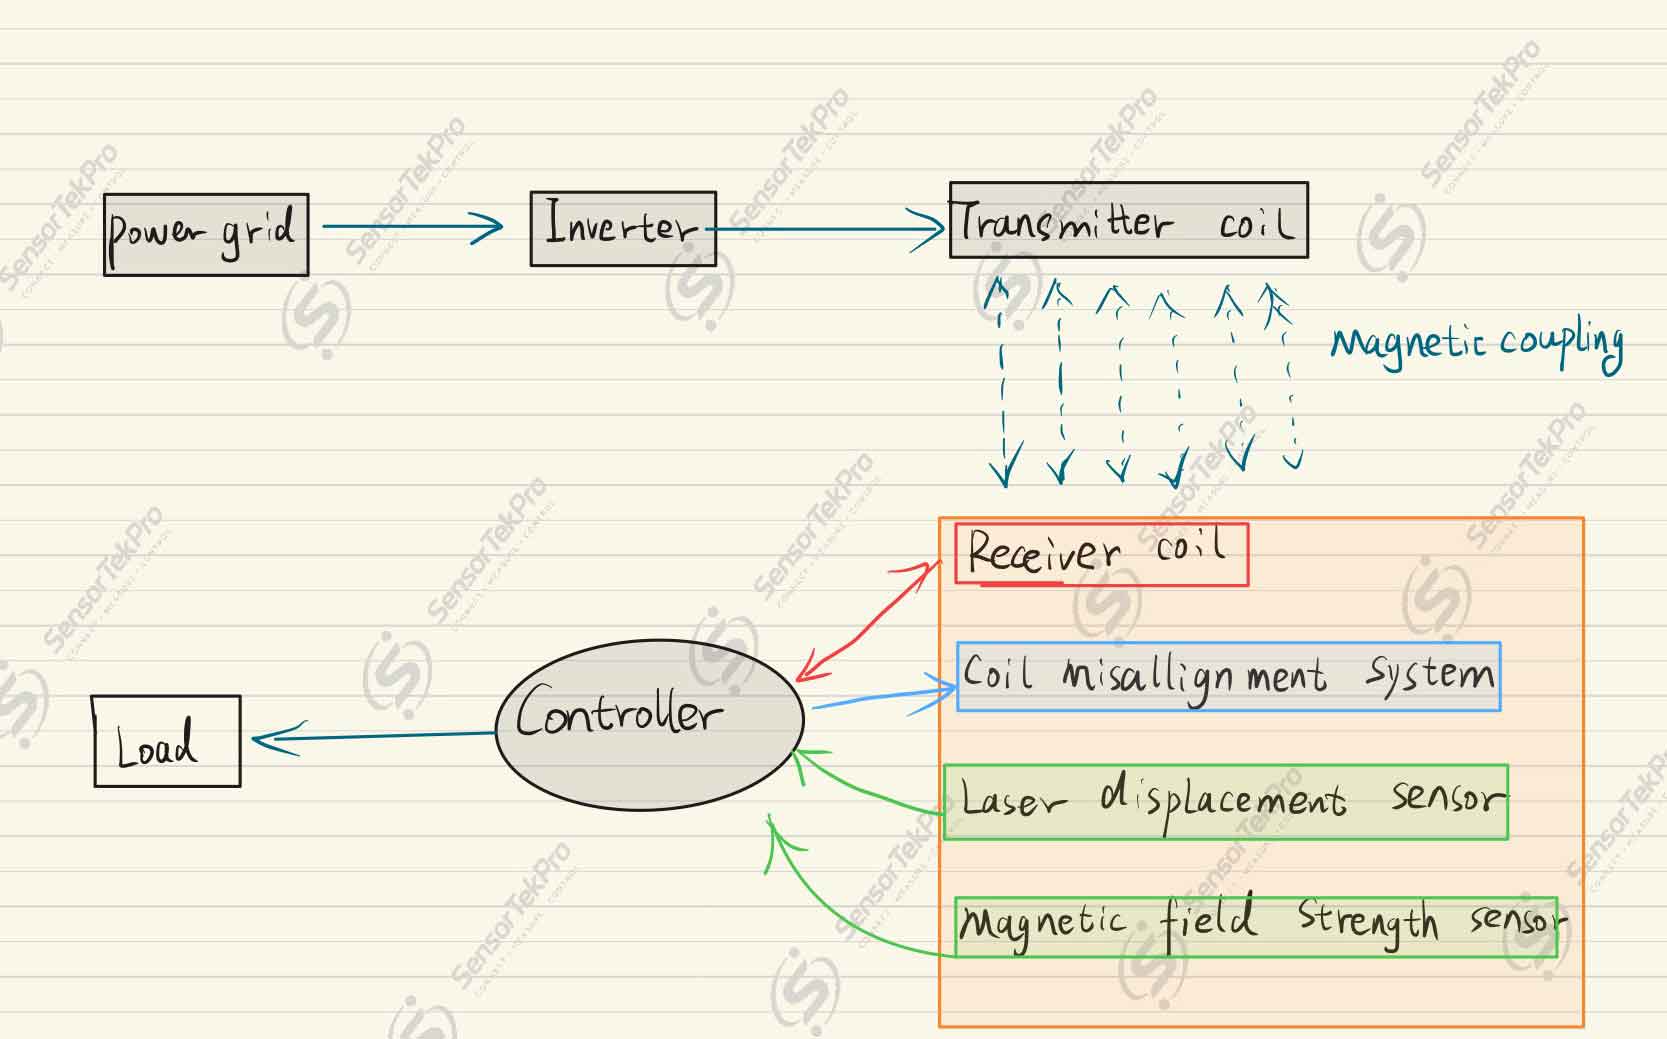 Power grid
Inverter
Transmitter coil
Magnetic coupling
Receiver coil
Coil misallignment system
Controller
Load
Laser displacement sensor
Magnetic field strength sensor
SensorTekPro
CONNECT • MEASURE • CONTROL